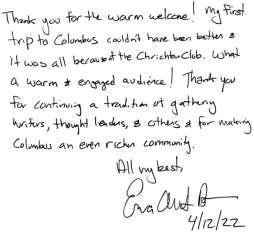 Thank you for the warm welcome! My first
trip to Columbus couldn't have been better &
it was all because of the Chrichton Club. What
a warm & engaged audience! Thank you
for continuing a tradition of gathering
writers, thought leaders, & others & for making
Columbus an even richer community.
All my best,
4/12/22